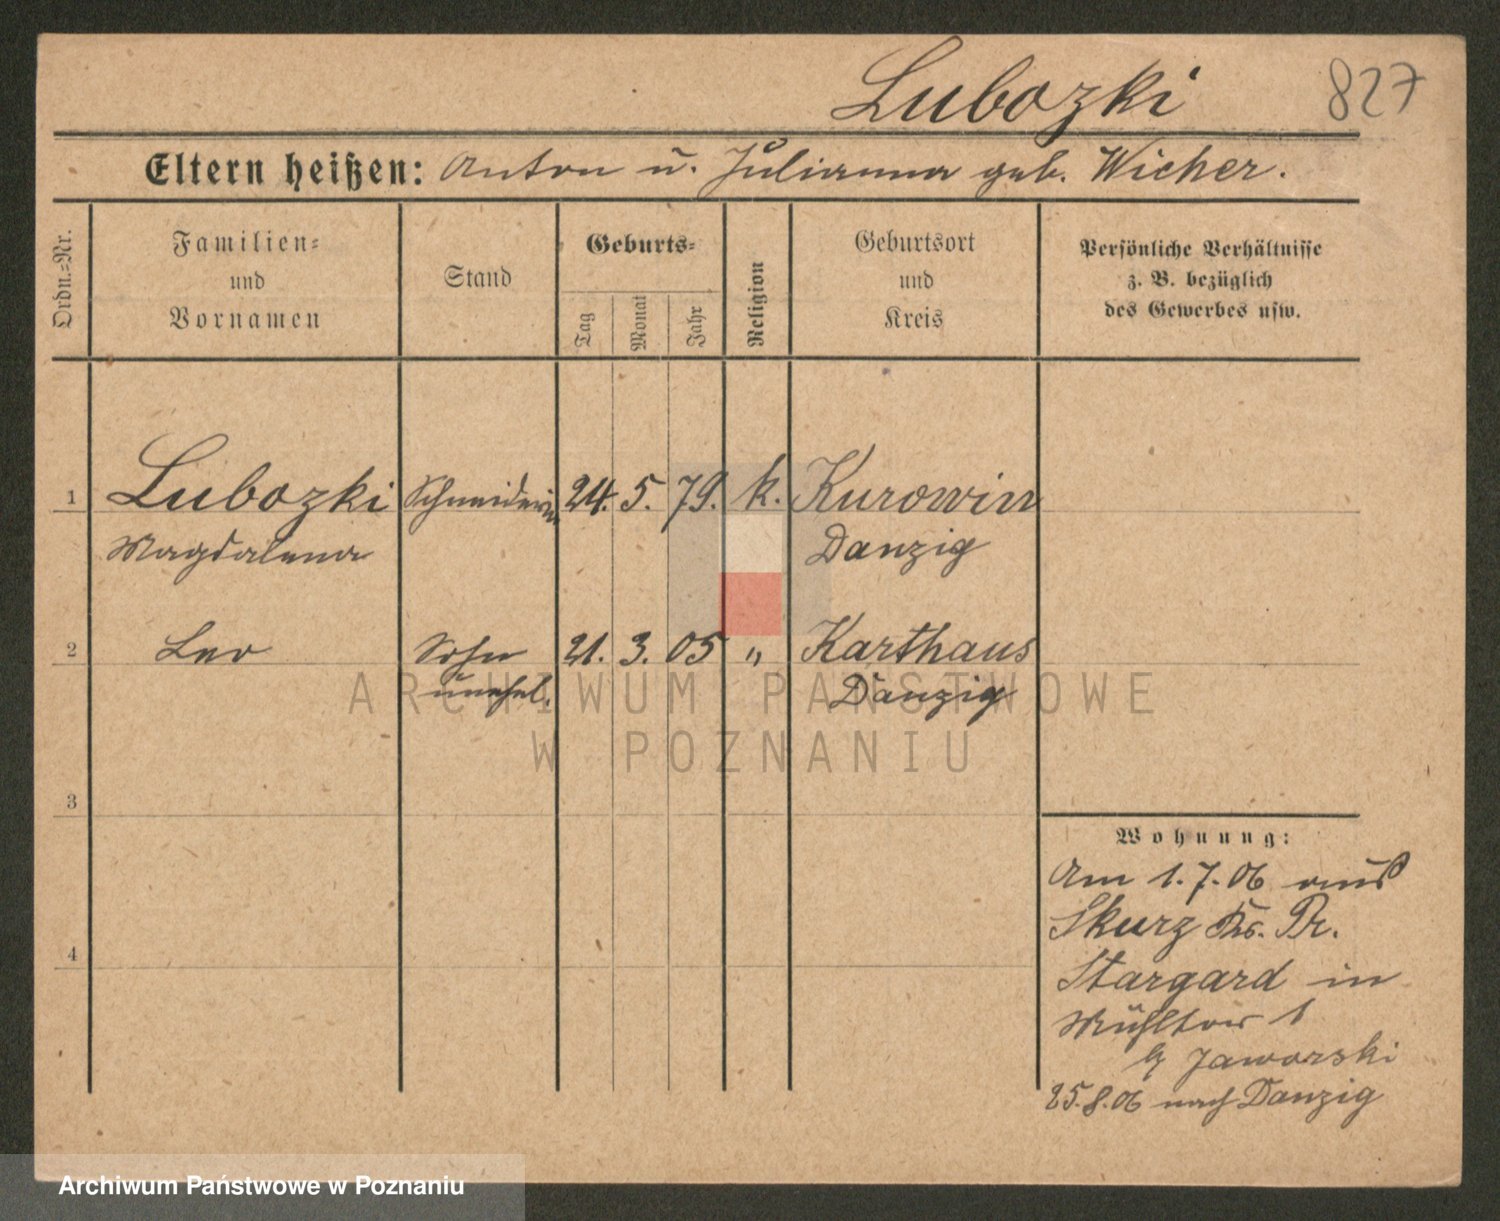 Lubozki
827
Eltern heißen: Anton u. Julianna geb. Wicher.
Ordn.=Nr.
Familien=
und
Vornamen
Stand
Geburts=
Tag
Monat
Jahr
Religion
Geburtsort
und
Kreis
Persönliche Verhältnisse
z. B. bezüglich
des Gewerbes usw.
1 Lubozki Schneiderin 24. 5. 79. k. Kurowin
Magdalena Danzig
2 Leo Sohn 21. 3. 05 " Karthaus
unehel. Danzig
3
4
Wohnung:
Am 1.7.06 aus
Skurz Krs. Pr.
Stargard in
Mühltor 1
b/ Jaworski
25.8.06 nach Danzig
ARCHIWUM PAŃSTWOWE
W POZNANIU
Archiwum Państwowe w Poznaniu